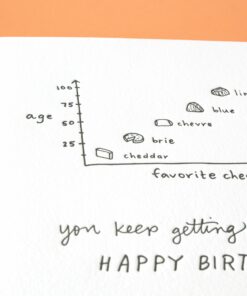 100
75
50
25
age
blue
chevre
brie
cheddar
favorite
you keep getting
HAPPY